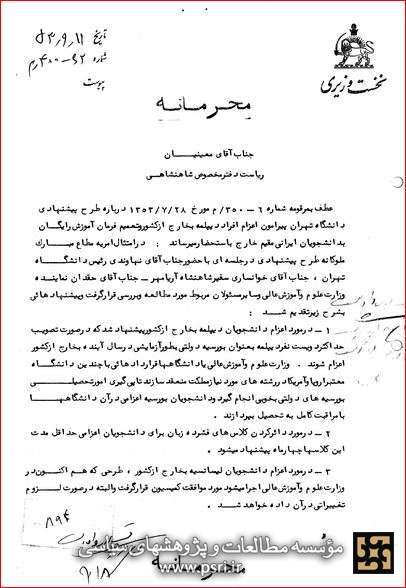 تاریخ ۵۳٫۹٫۱۱
شماره
پیوست
نخست وزیری
محرمانه
جناب آقای معینیان
ریاست دفتر مخصوص شاهنشاهی
عطف بمرقومه شماره ۶-۳۵۰/م مورخ ۱۳۵۳/۷/۲۸ درباره طرح پیشنهادی
دانشگاه تهران پیرامون اعزام افراد دیپلمه بخارج ازکشوروتعمیم فرمان آموزش رایگان
بدانشجویان ایرانی مقیم خارج باستحضارمیرساند : درامتثال امریه مطاع مبارک
ملوکانه طرح پیشنهادی درجلسه ای باحضورجناب آقای نهاوندی رئیس دانشگاه
تهران ، جناب آقای خوانساری سفیرشاهنشاه آریامهر - جناب آقای حقدان نماینده
وزارت علوم وآموزش عالی وسایرمسئولان مربوط مورد مطالعه وبررسی قرارگرفت وپیشنهاد هائی
بشرح زیرتقدیم شد :
۱ - درمورد اعزام دانشجویان دیپلمه بخارج ازکشورپیشنهاد شد که درصورت تصویب
حداکثر دویست نفردیپلمه بعنوان بورسیه دولتی بطورآزمایشی درسال آینده بخارج ازکشور
اعزام شوند . وزارت علوم وآموزش عالی یادانشگاهها قراردادهائی باچندین دانشگاه
معتبراروپا وآمریکا در رشته های مورد نیازمملکت منعقد سازند تاپی گیری امورتحصیلی
بورسیه های دولتی بخوبی انجام گیرد ودانشجویان بورسیه اعزامی درآن دانشگاهها
بامراقبت کامل به تحصیل بپردازند .
۲ - درمورد دائرکردن کلاس های فشرده زبان برای دانشجویان اعزامی حداقل مدت
این کلاسها چهارماه پیشنهاد میشود .
۳ - درمورد اعزام دانشجویان لیسانسیه بخارج ازکشور ، طرحی که هم اکنون در
وزارت علوم وآموزش عالی اجرا میشود مورد موافقت کمیسیون قرارگرفت والبته درصورت لزوم
تغییراتی درآن داده خواهد شد .
۸۹۴
محرمانه
مؤسسه مطالعات و پژوهشهای سیاسی
www.psri.ir